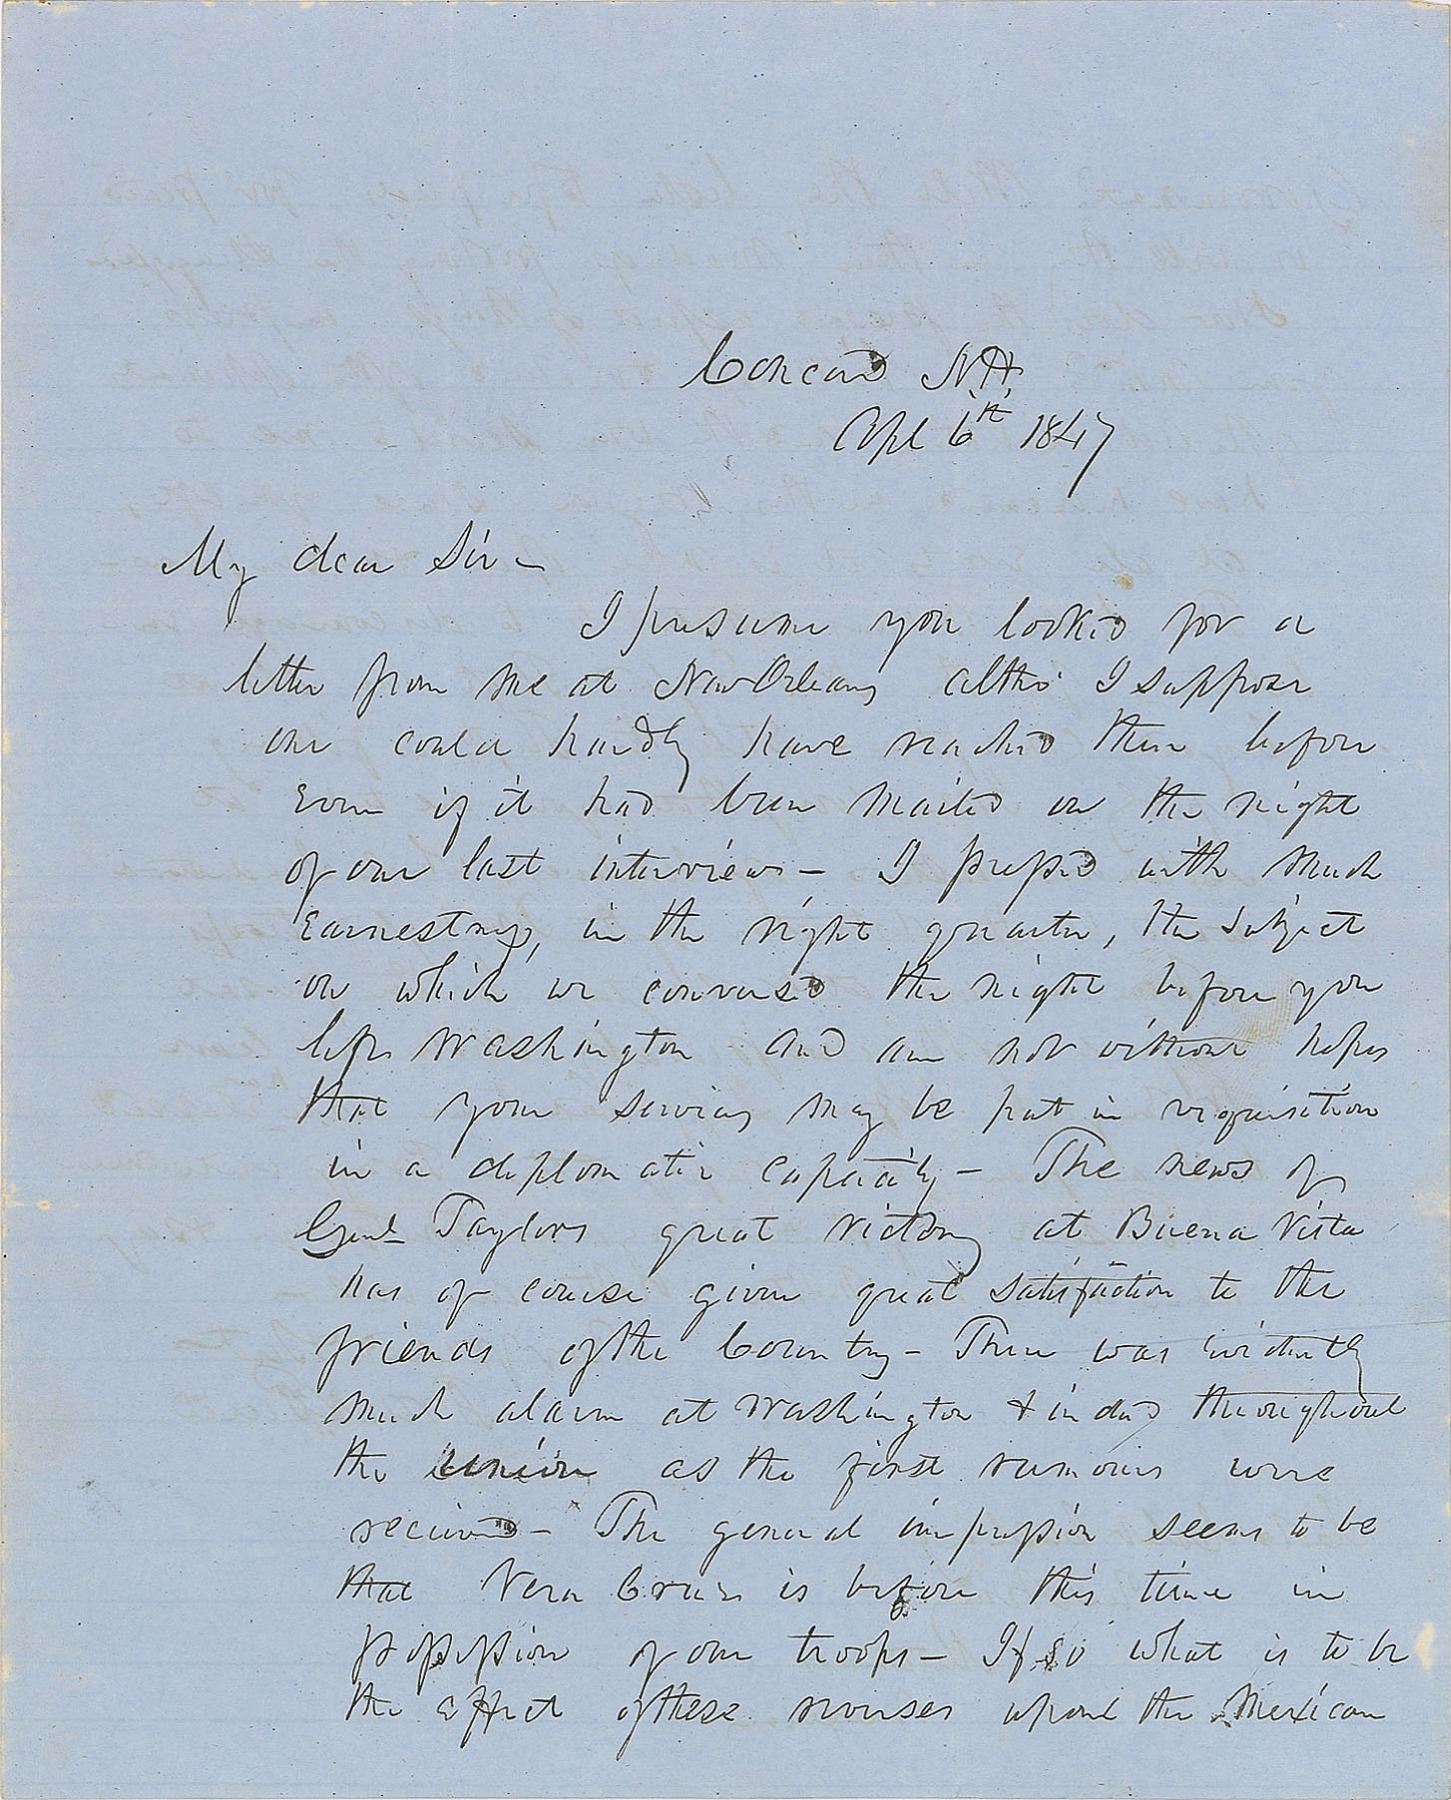 Concord N.H.
Apl 6th 1847
My dear Sir –
I presume you looked for a
letter from me at New Orleans altho' I suppose
one could hardly have reached there before
even if it had been mailed on the night
of our last interview – I pressed with much
earnestness, in the right quarter, the subject
on which we conversed the night before you
left Washington and am not without hopes
that your services may be put in requisition
in a diplomatic capacity – The news of
Genl Taylors great victory at Buena Vista
has of course given great satisfaction to the
friends of the Country – There was evidently
much alarm at Washington & indeed throughout
the Union as the first rumours were
received – The general impression seems to be
that Vera Cruz is before this time in
possession of our troops – If so what is to be
the effect of these reverses upon the Mexican